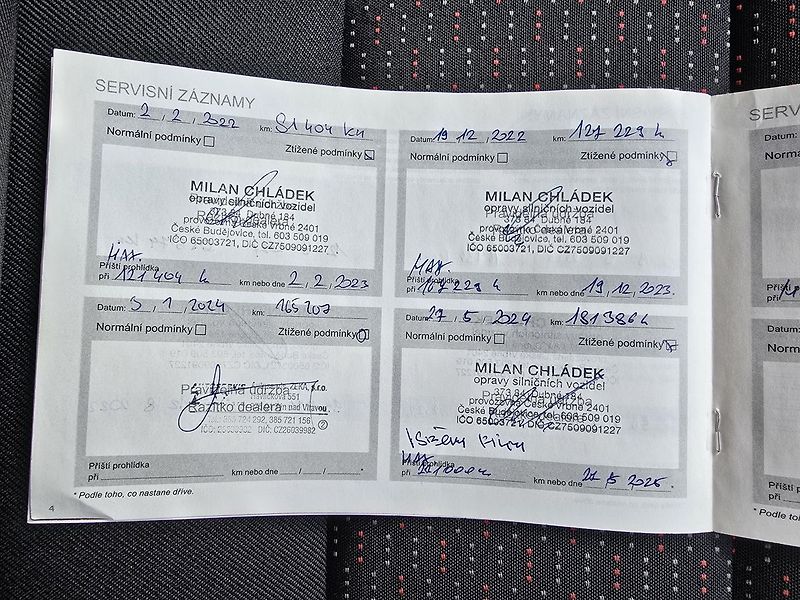 SERVISNÍ ZÁZNAMY
Datum: 2, 2, 2022 km: 91 404 km
Normální podmínky
Ztížené podmínky
MILAN CHLÁDEK
opravy silničních vozidel
373 84 Dubné 184
provozovna České Vrbné 2401
České Budějovice, tel. 603 509 019
IČO 65003721, DIČ CZ7509091227
MAX.
Příští prohlídka
při 121 404 k km nebo dne 2, 2, 2023
Datum: 19 12, 2022 km: 127 229 k
Normální podmínky
Ztížené podmínky
MILAN CHLÁDEK
opravy silničních vozidel
Pravidelná údržba
373 84 Dubné 184
provozovna České Vrbné 2401
České Budějovice, tel. 603 509 019
IČO 65003721, DIČ CZ7509091227
MAX.
Příští prohlídka
při 157 229 k km nebo dne 19, 12, 2023.
Datum: 3, 1, 2024 km: 165 207
Normální podmínky
Ztížené podmínky
Pravidelná údržba
Razítko dealera
DIČ: CZ26039982
Příští prohlídka
při km nebo dne / / *
Datum: 27, 5, 2024 km: 181386k
Normální podmínky
Ztížené podmínky
MILAN CHLÁDEK
opravy silničních vozidel
373 84 Dubné 184
provozovna České Vrbné 2401
České Budějovice, tel. 603 509 019
IČO 65003721, DIČ CZ7509091227
MAX
Příští prohlídka
při km nebo dne 27 5 2025.
* Podle toho, co nastane dříve.
4
SERV
Datum:
Norm
Příští
při
Datum:
Norm
Příští p
při
* Podle to